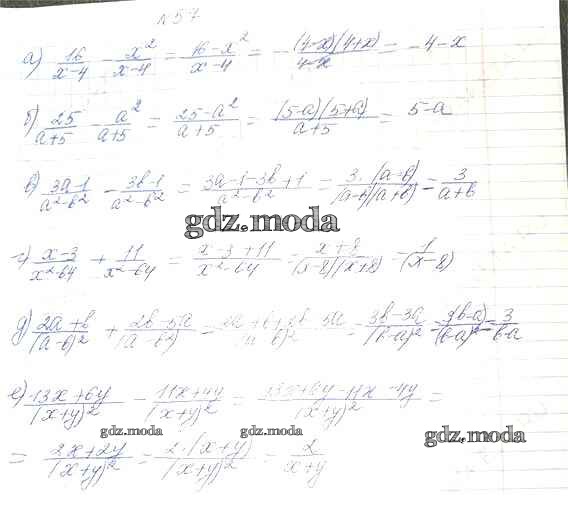 №57
а) 16/(x-4) - x²/(x-4) = (16-x²)/(x-4) = -(4-x)(4+x)/(4-x) = -4-x
б) 25/(a+5) - a²/(a+5) = (25-a²)/(a+5) = (5-a)(5+a)/(a+5) = 5-a
в) (3a-1)/(a²-b²) - (3b-1)/(a²-b²) = (3a-1-3b+1)/(a²-b²) = 3·(a-b)/((a-b)(a+b)) = 3/(a+b)
gdz.moda
г) (x-3)/(x²-64) + 11/(x²-64) = (x-3+11)/(x²-64) = (x+8)/((x-8)(x+8)) = 1/(x-8)
д) (2a+b)/(a-b)² + (2b-5a)/(a-b)² = (2a+b+2b-5a)/(a-b)² = (3b-3a)/(b-a)² = 3(b-a)/(b-a)² = 3/(b-a)
gdz.moda
е) (13x+6y)/(x+y)² - (11x+4y)/(x+y)² = (13x+6y-11x-4y)/(x+y)² =
gdz.moda gdz.moda gdz.moda
= (2x+2y)/(x+y)² = 2·(x+y)/(x+y)² = 2/(x+y)